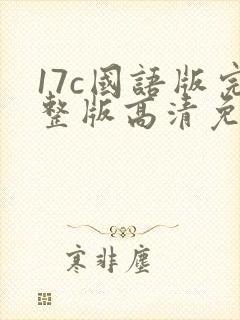 17c國語版完
整版高清免
寒非塵